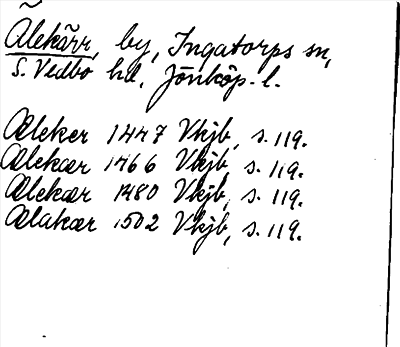 Älekärr, by, Ingatorps sn,
S. Vedbo hd, Jönköp. l.
Æleker 1447 Vkjb, s. 119.
Ælekær 1466 Vkjb, s. 119.
Ælekær 1480 Vkjb, s. 119.
Ælakær 1502 Vkjb, s. 119.